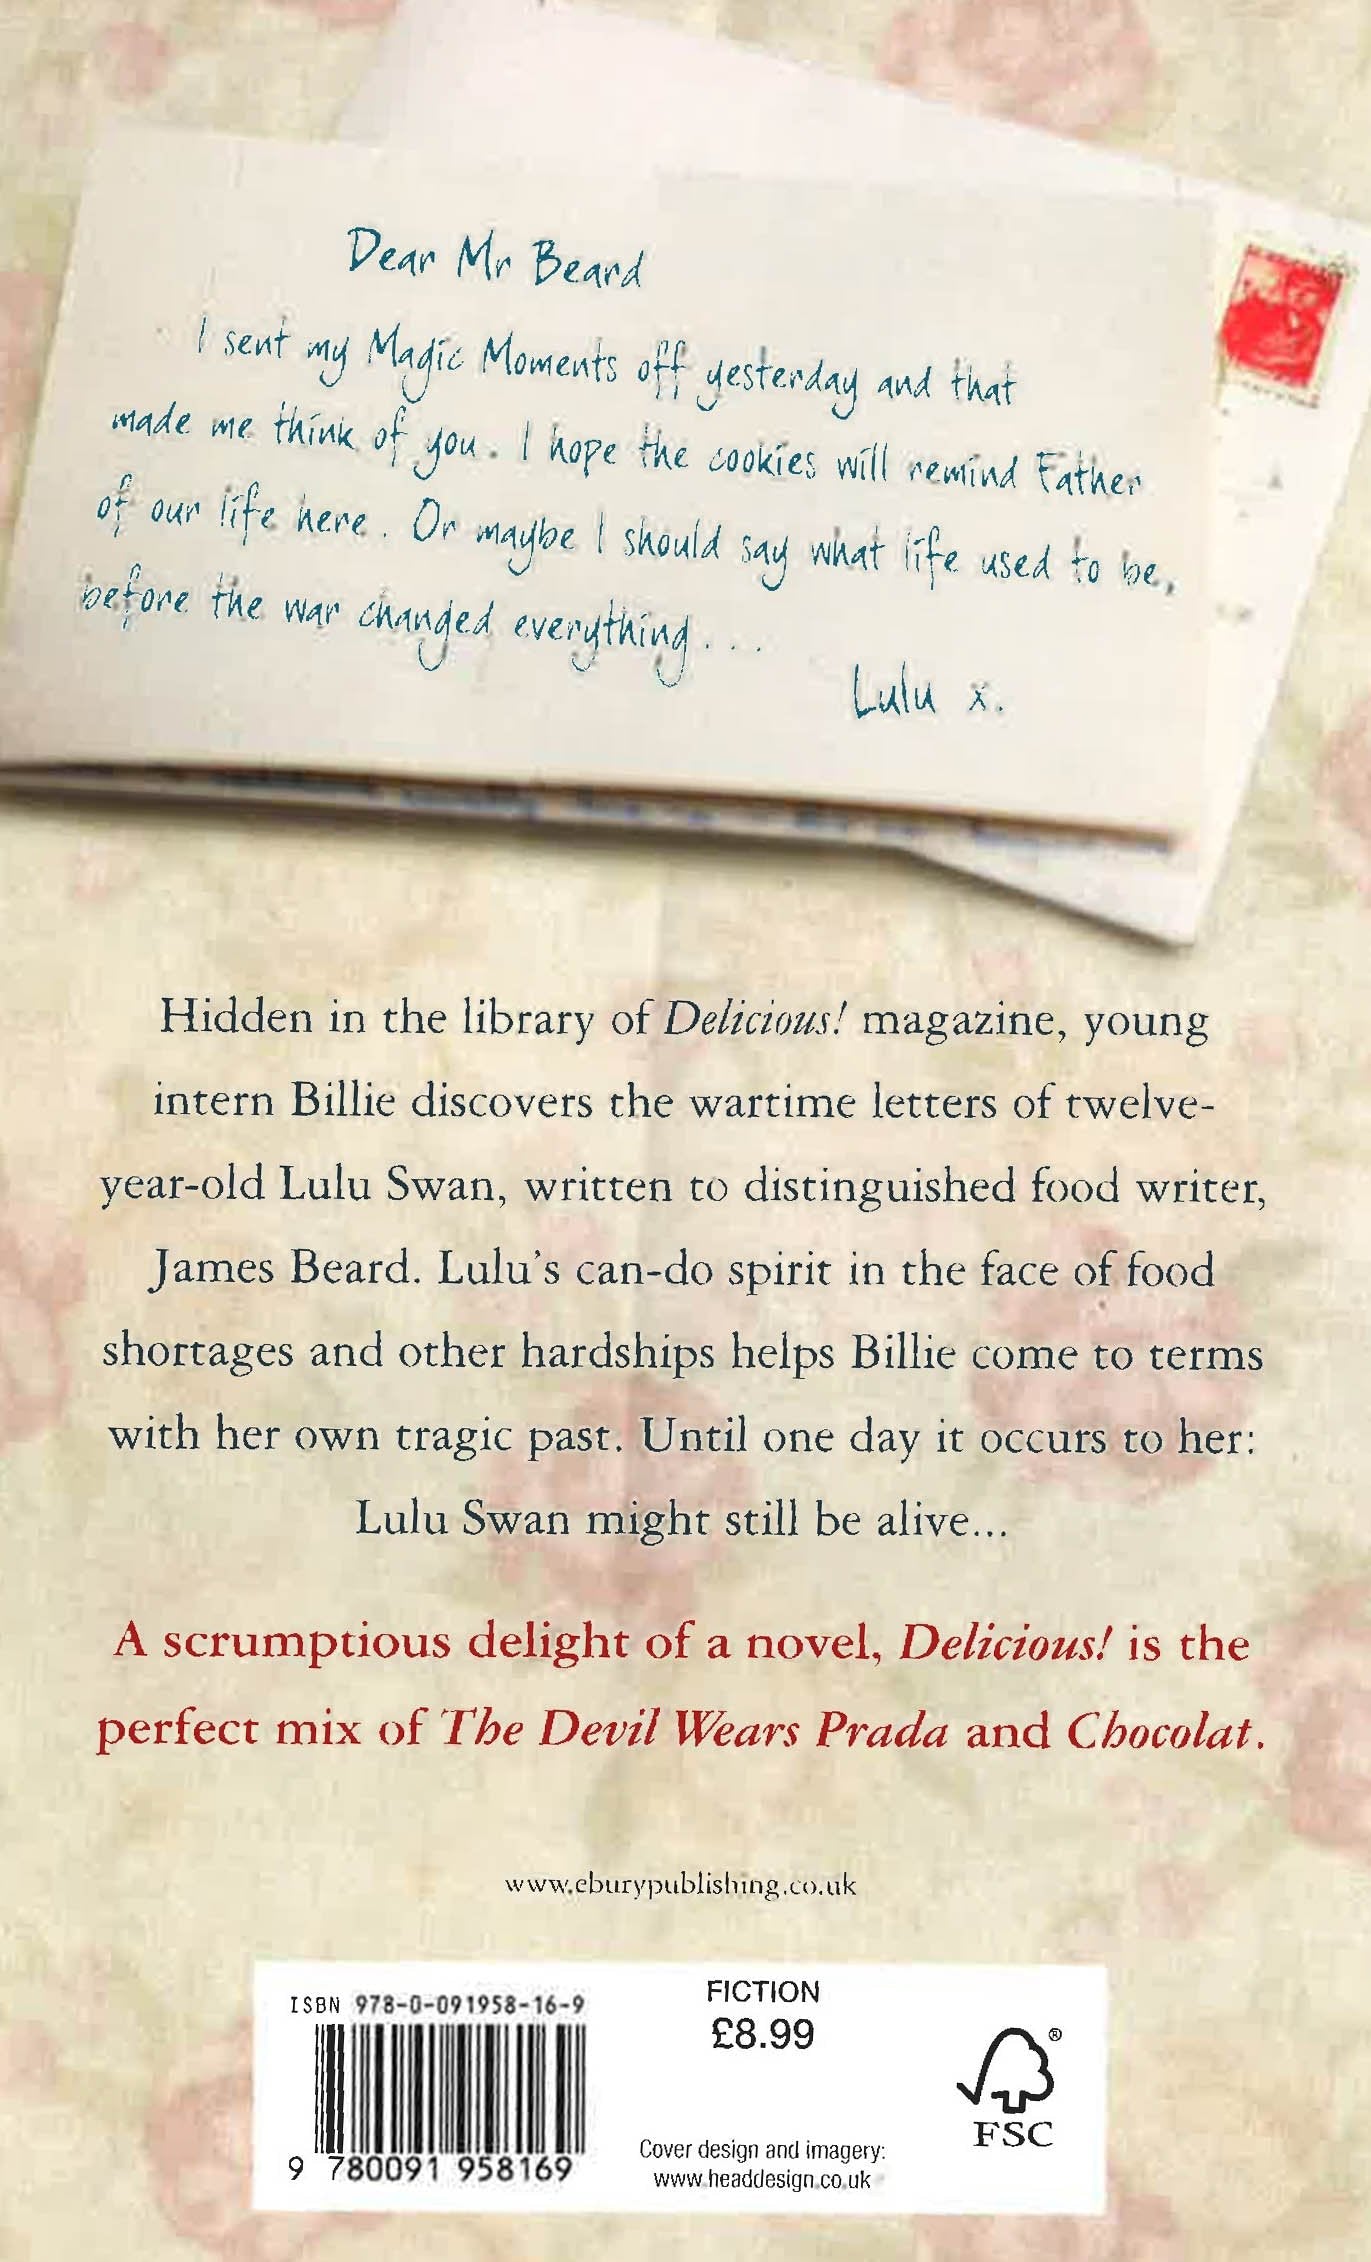 Dear Mr Beard
I sent my Magic Moments off yesterday and that
made me think of you. I hope the cookies will remind Father
of our life here. Or maybe I should say what life used to be,
before the war changed everything...
Lulu x.
Hidden in the library of Delicious! magazine, young
intern Billie discovers the wartime letters of twelve-
year-old Lulu Swan, written to distinguished food writer,
James Beard. Lulu's can-do spirit in the face of food
shortages and other hardships helps Billie come to terms
with her own tragic past. Until one day it occurs to her:
Lulu Swan might still be alive...
A scrumptious delight of a novel, Delicious! is the
perfect mix of The Devil Wears Prada and Chocolat.
www.eburypublishing.co.uk
ISBN 978-0-091958-16-9
9 780091 958169
FICTION
£8.99
Cover design and imagery:
www.headdesign.co.uk
®
FSC